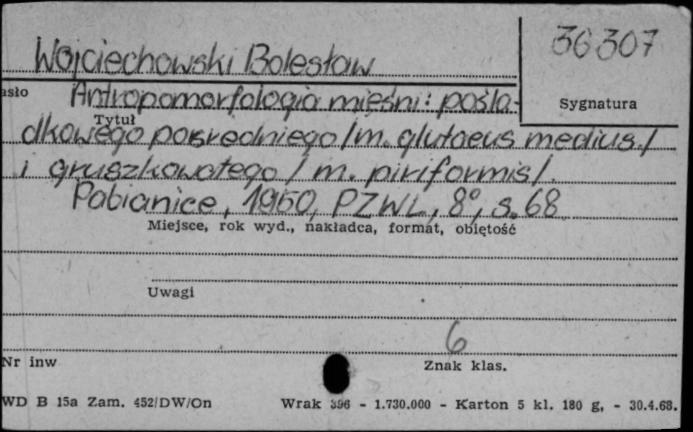 36307
Wojciechowski Bolesław
asło
Antropomorfologia mięśni: pośla-
Sygnatura
Tytuł
dkowego pośredniego /m. glutaeus medius./
i gruszkowatego / m. piriformis/.
Pabianice, 1950, PZWL, 8°, s. 68
Miejsce, rok wyd., nakładca, format, objętość
Uwagi
6
Nr inw
Znak klas.
WD B 15a Zam. 452/DW/On Wrak 396 - 1.730.000 - Karton 5 kl. 180 g. - 30.4.68.